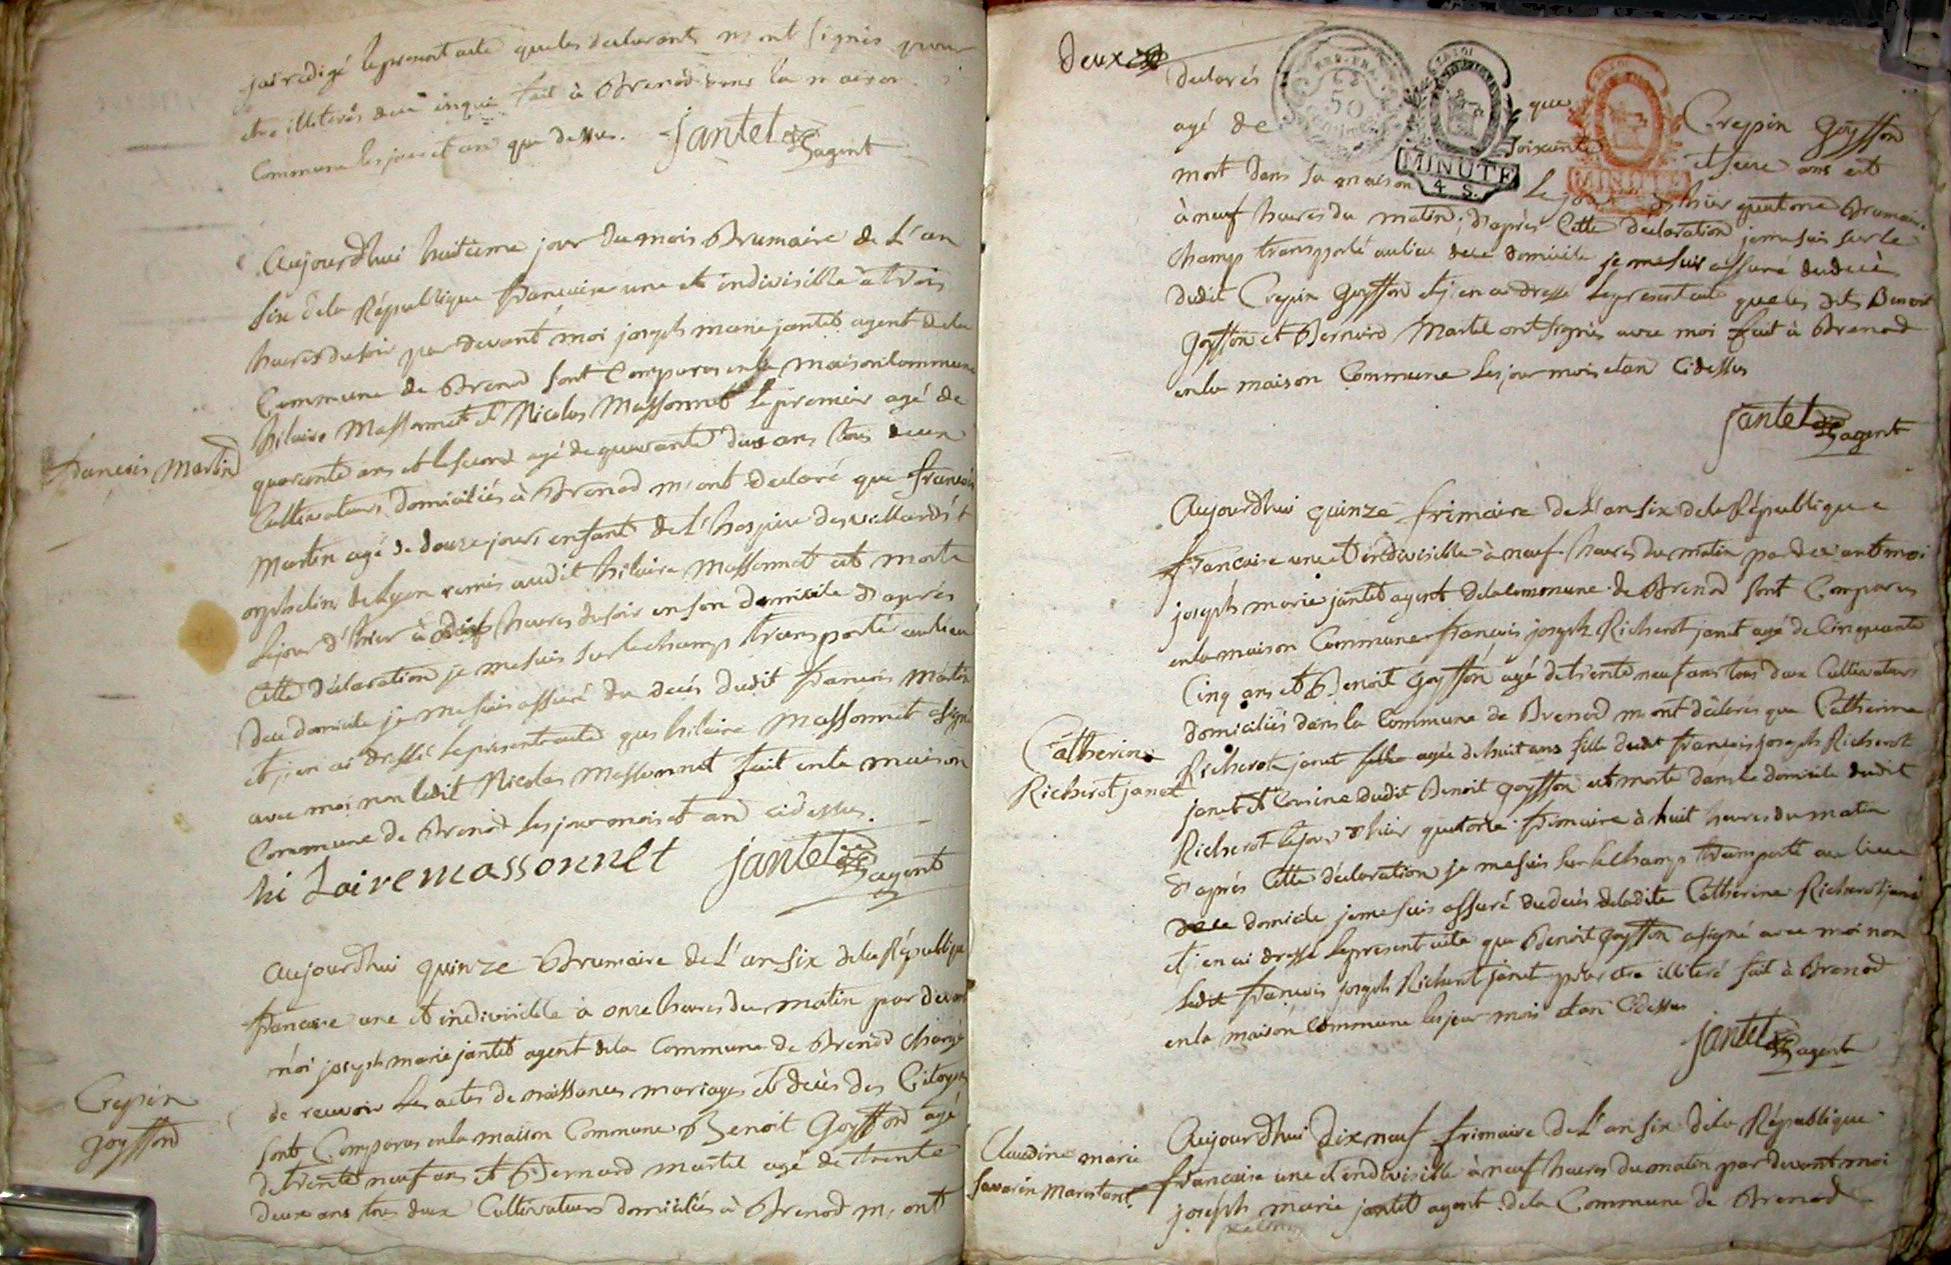 j'ai redigé le present acte que les declarants n'ont signés pour
etre illiterés de ce enquis fait à Brenod dans la maison
Commune les jour et an que dessus. Jantet
agent
Aujourdhui huitieme jour du mois Brumaire de L'an
Six de la République francaise une et indivisible à trois
heures du soir par devant moi joseph marie jantet agent de la
Commune de Brenod sont Comparus en la maison Commune
hilaire Massonnet et Nicolas Massonnet le premier agé de
francois Martin
quarante ans et le second agé de quarante deux ans tous deux
Cultivateurs domiciliés à Brenod m'ont declaré que francois
Martin agé de douze jours enfant de L'hospice des viellards et
orphelins de Lyon remis audit hilaire Massonnet est morte
le jour d'hier à dix heures du soir en son domicile d'après
Cette declaration je me suis sur le champ transporté au lieu
de ce domicile je me suis assuré du decés dudit francois Martin
et j'en ai dressé le present acte que hilaire Massonnet a signé
avec moi non ledit Nicolas Massonnet fait en la maison
Commune de Brenod les jour mois et an cidessus.
hi Lairemassonnet jantet
agent
Aujourdhui quinze Brumaire de L'an Six de la République
francaise une et indivisible à onze heures du matin par devant
moi joseph marie jantet agent de la Commune de Brenod chargé
de recevoir les actes de naissances mariages et decès des Citoyens
Crepin
goyffond
sont Comparus en la maison Commune Benoit Goyffond agé
de trente neuf ans et Bernard martel agé de trente
deux ans tous deux Cultivateurs domiciliés à Brenod m'ont
deux
declarés que Crepin Goyffond
agé de soixante et seize ans est
mort dans sa maison le jour d'hier quatorze Brumaire
REP. FRA.
50
MINUTE
4 S.
MINUTE
à neuf heures du matin, d'après Cette declaration je me suis sur le
champ transporté au lieu de ce domicile je me suis assuré du decès
dudit Crepin Goyffon et j'en ai dressé le present acte que les dits Benoit
Goyffon et Bernard Martel ont signés avec moi fait à Brenod
en la maison Commune les jour mois et an Cidessus
Jantet
agent
Aujourdhui quinze frimaire de L'an Six de la République
francaise une et indivisible à neuf heures du matin par devant moi
joseph marie jantet agent de la commune de Brenod sont Comparus
en la maison Commune francois joseph Richerot janet agé de Cinquante
Cinq ans et Benoit Goyffon agé de trente neuf ans tous deux Cultivateurs
domiciliés dans la Commune de Brenod m'ont déclarés que Catherine
Catherine
Richerot janet
Richerot janet fille agée de huit ans fille dudit francois joseph Richerot
janet et Cousine dudit Benoit goyffon est morte dans le domicile dudit
Richerot le jour d'hier quatorze frimaire à huit heures du matin
d'après Cette déclaration je me suis sur le champ transporté au lieu
de ce domicile je me suis assuré du decès de ladite Catherine Richerot janet
et j'en ai dressé le present acte que Benoit goyffon a signé avec moi non
ledit francois joseph Richerot janet pour etre illiteré fait à Brenod
en la maison commune les jour mois et an Cidessus
jantet
agent
Claudine marie
Savarin Marestant
Aujourdhui Dix neuf frimaire de L'an Six de la République
francaise une et indivisible à neuf heures du matin par devant moi
joseph marie jantet agent de la Commune de Brenod